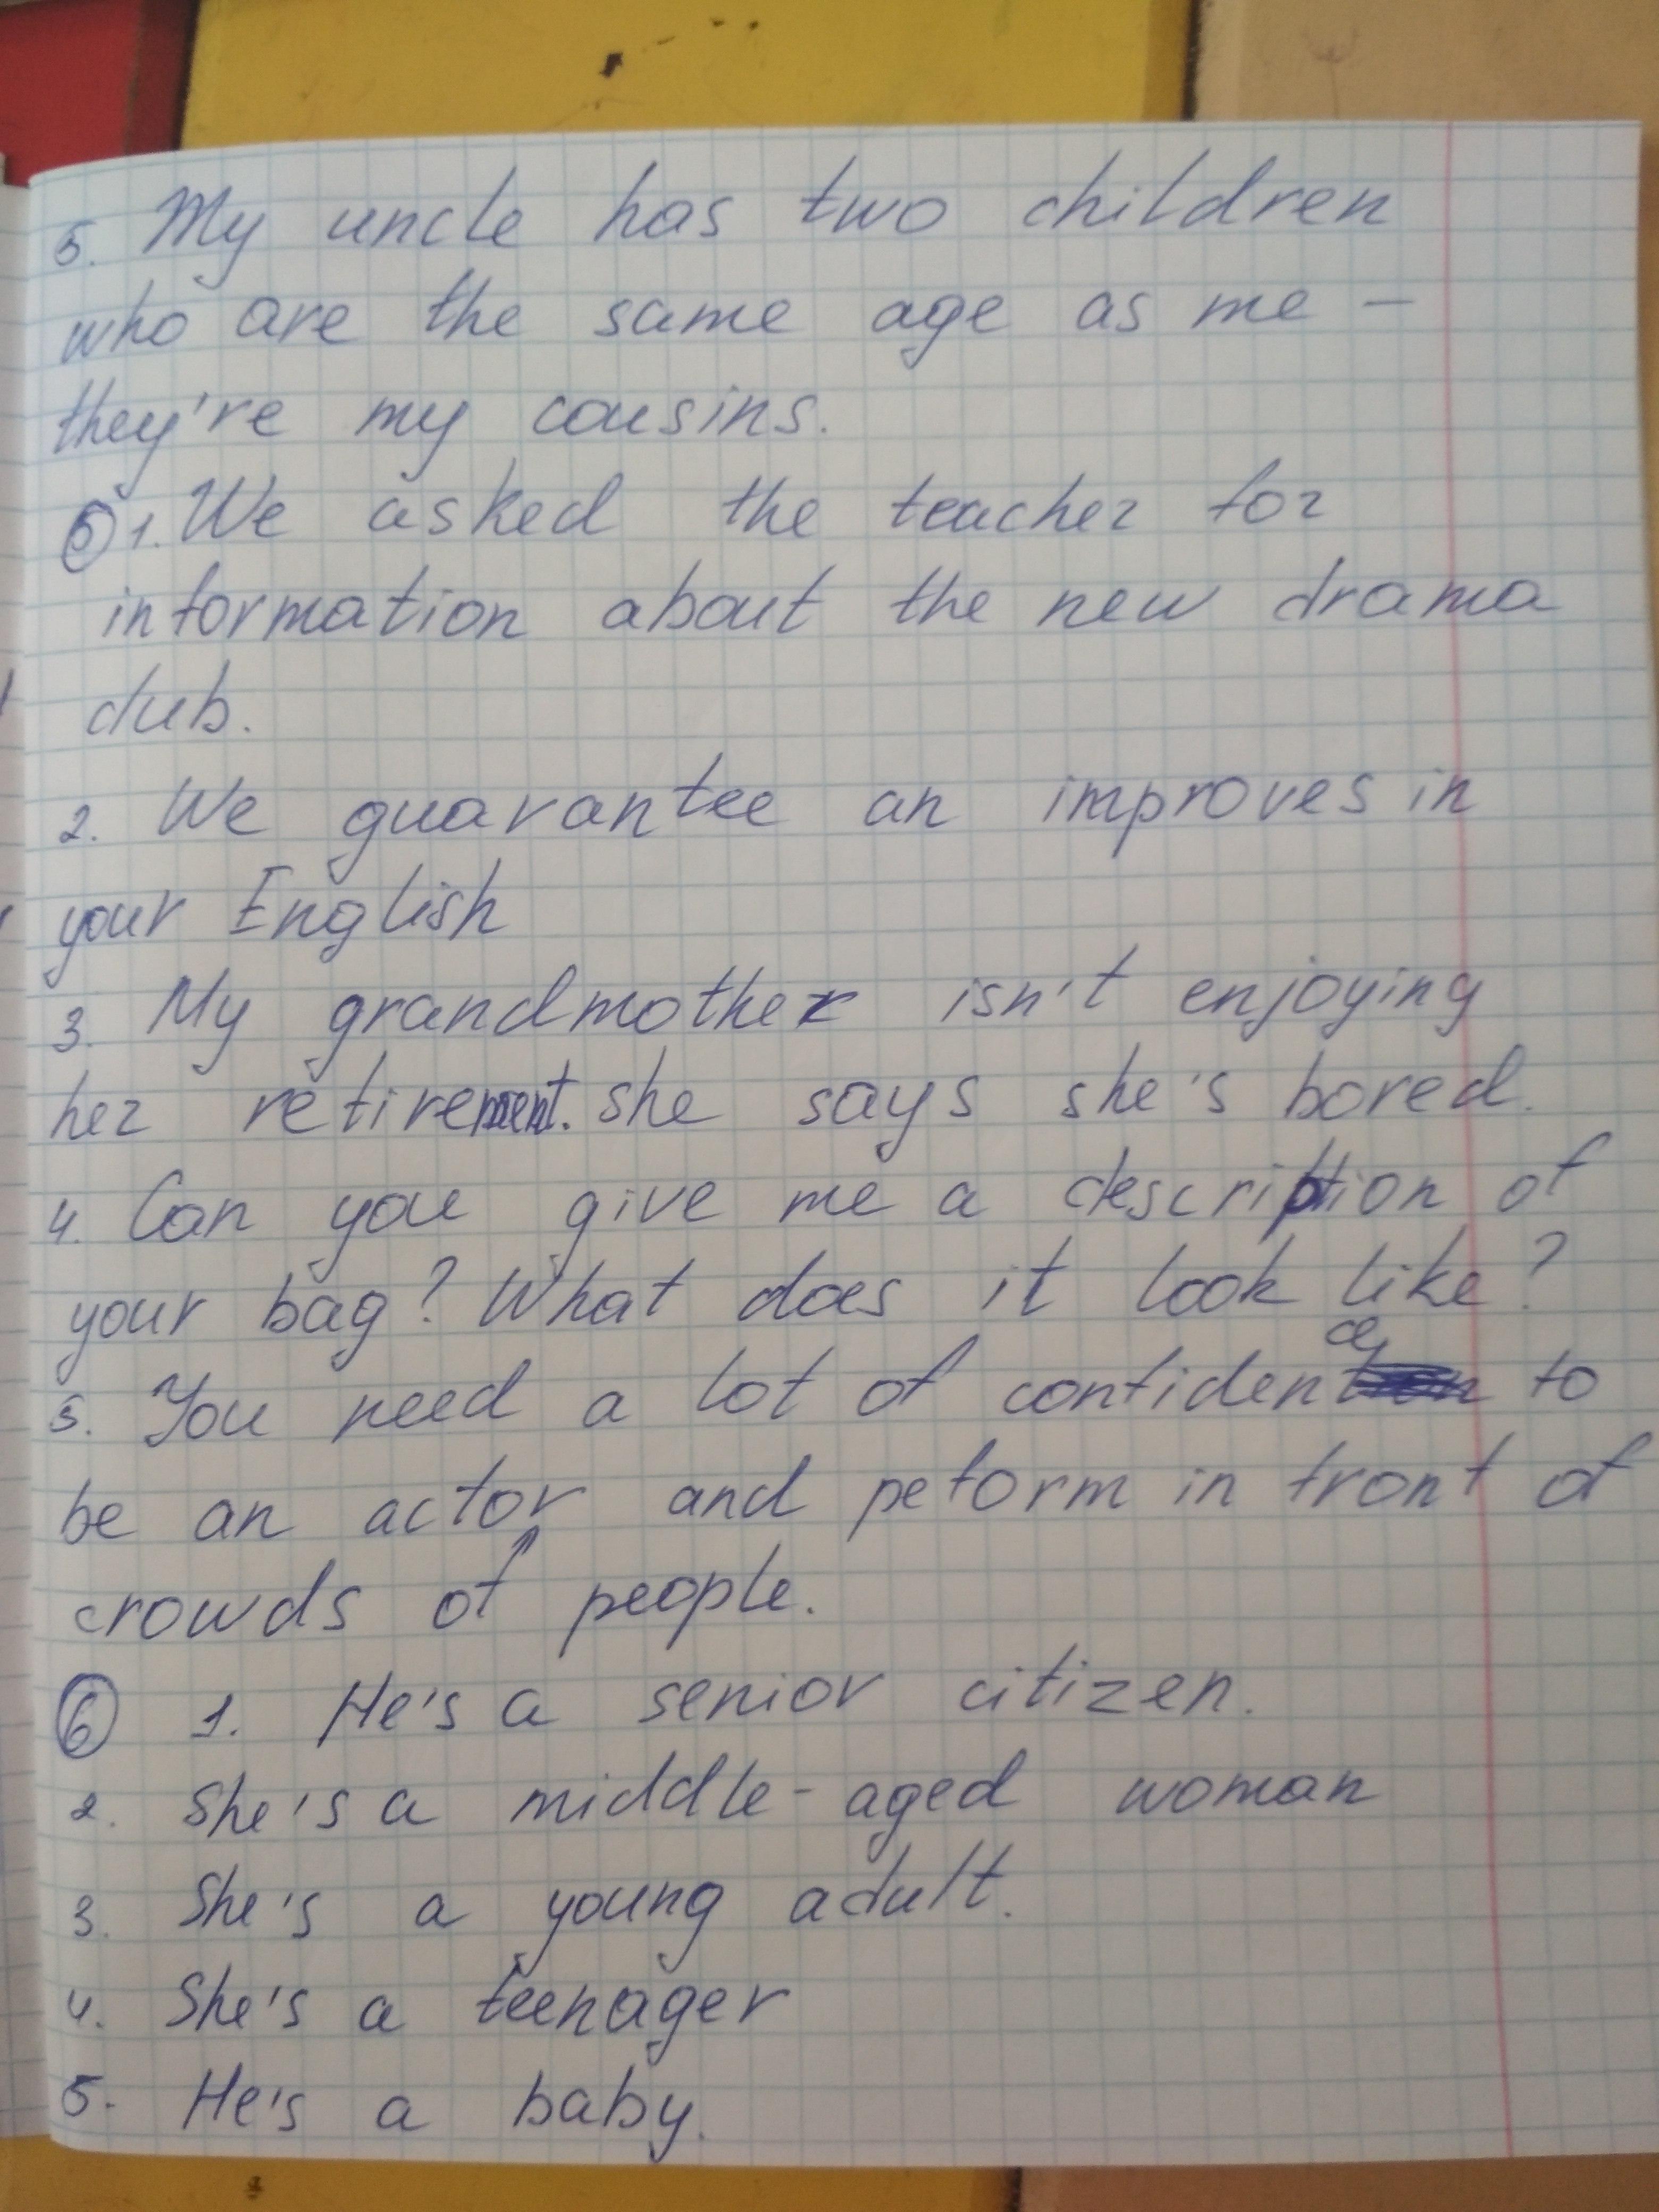 5. My uncle has two children
who are the same age as me –
they're my cousins.
⑤ 1. We asked the teacher for
information about the new drama
club.
2. We guarantee an improves in
your English
3. My grandmother isn't enjoying
her retirement. she says she's bored.
4. Can you give me a description of
your bag? What does it look like?
5. You need a lot of confidence to
be an actor and peform in front of
crowds of people.
⑥ 1. He's a senior citizen.
2. She's a middle-aged woman
3. She's a young adult.
4. She's a teenager
5. He's a baby.